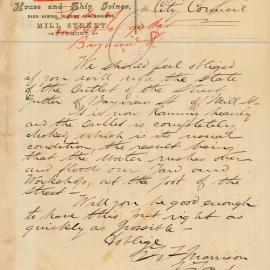 House and Ship Joiner,
BAND SAWING, TURNING
MILL STREET,
PYRMONT
City Council
Bayview St
We should feel obliged
if you will note the State
of the Outlet of the Street
Gutter of Bayview St & Mill St
It is now running heavily
and the Outlet is completely
choked which is its usual
condition, the result being
that the Water rushes over
and floods our Yard and
Workshops, at the foot of the
Street —
Will you be good enough
to have this put right as
quickly as possible —
& oblige
Morrison